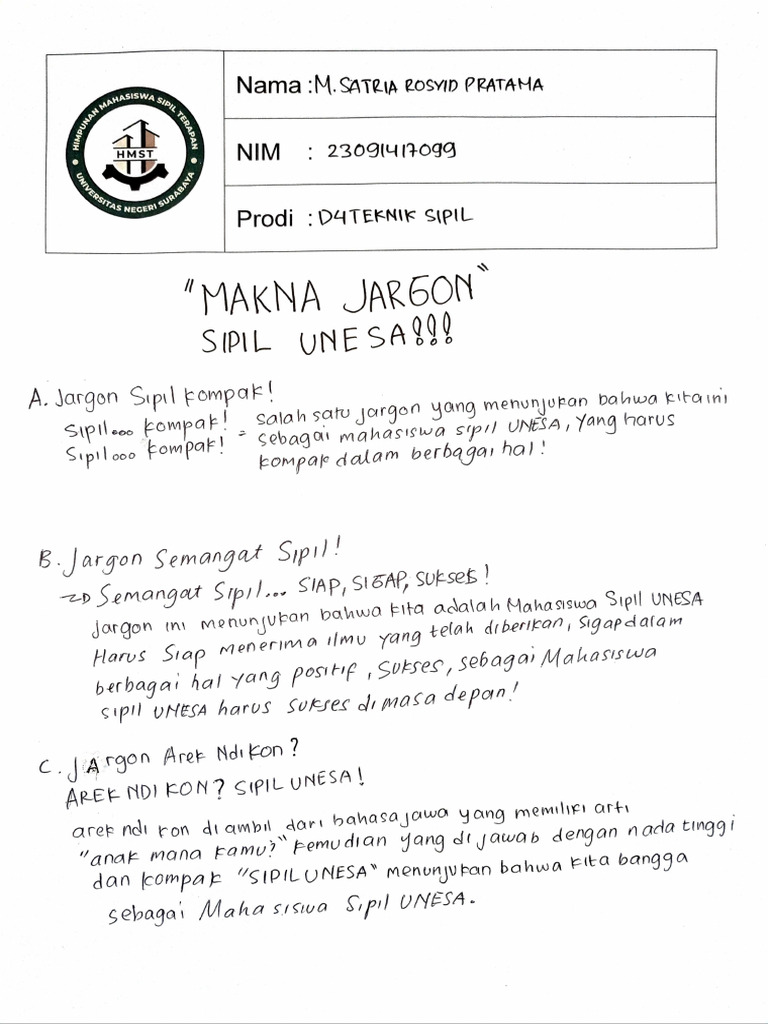 HIMPUNAN MAHASISWA SIPIL TERAPAN
HMST
UNIVERSITAS NEGERI SURABAYA
Nama : M. SATRIA ROSYID PRATAMA
NIM : 23091417099
Prodi : D4 TEKNIK SIPIL
"MAKNA JARGON"
SIPIL UNESA!!!
A. Jargon Sipil Kompak!
Sipil... kompak! = Salah satu jargon yang menunjukan bahwa kita ini
Sipil... kompak! sebagai mahasiswa sipil UNESA, yang harus
kompak dalam berbagai hal!
B. Jargon Semangat Sipil!
=D Semangat Sipil... SIAP, SIGAP, SUKSES!
Jargon ini menunjukan bahwa kita adalah Mahasiswa Sipil UNESA
Harus Siap menerima ilmu yang telah diberikan, Sigap dalam
berbagai hal yang positif, Sukses, sebagai Mahasiswa
sipil UNESA harus sukses dimasa depan!
C. JArgon Arek Ndi Kon?
AREK NDI KON? SIPIL UNESA!
arek ndi kon di ambil dari bahasa jawa yang memiliki arti
"anak mana kamu?" kemudian yang di jawab dengan nada tinggi
dan kompak "SIPIL UNESA" menunjukan bahwa kita bangga
sebagai Mahasiswa Sipil UNESA.